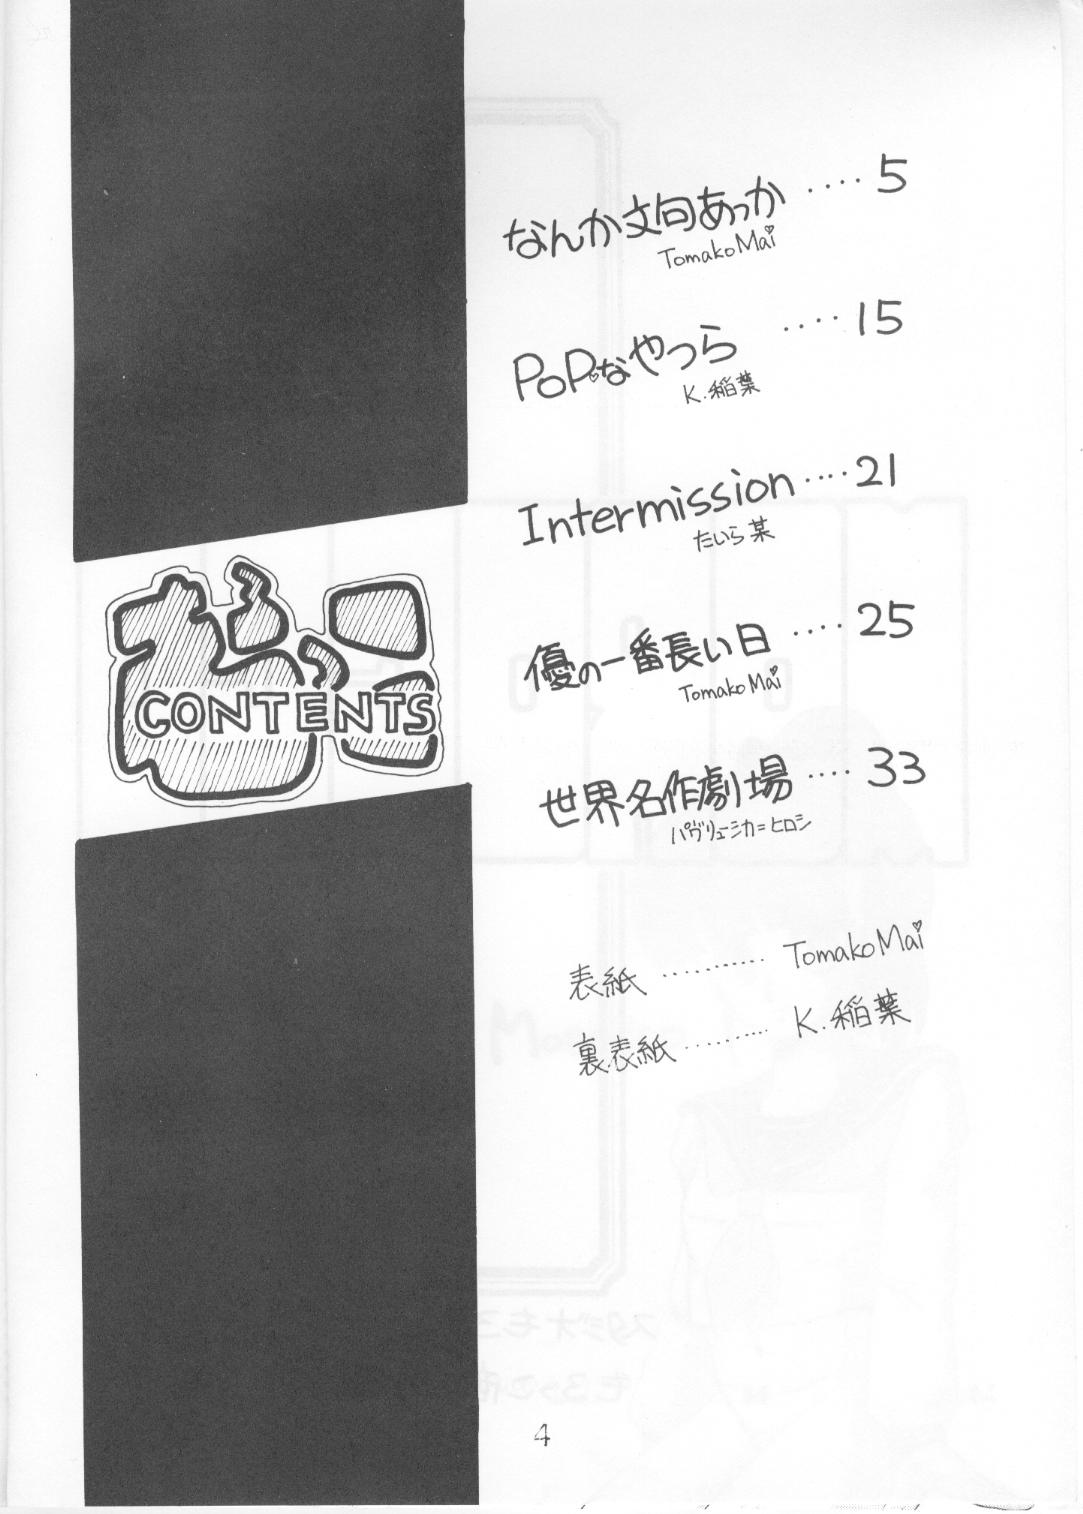 なんか文句あっか ････ 5
TomakoMai
PoPなやつら ････ 15
K.稲葉
Intermission ････ 21
たいら某
優の一番長い日 ････ 25
TomakoMai
世界名作劇場 ････ 33
パヴリューシカ=ヒロシ
もろっこ
CONTENTS
表紙 ･･･････････ TomakoMai
裏表紙 ･･･････････ K.稲葉
4